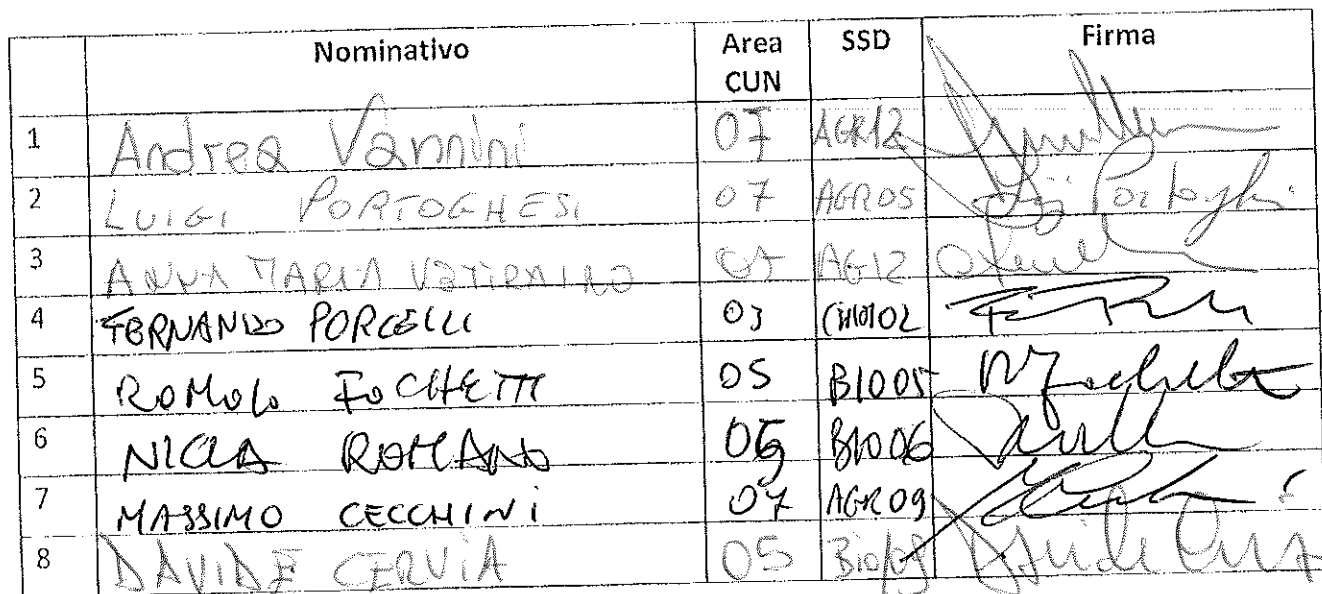 Nominativo Area CUN SSD Firma
1 Andrea Vannini 07 AGR12
2 LUIGI PORTOGHESI 07 AGR05
3 ANNA MARIA 07 AG12
4 FERNANDO PORCELLI 03 CHIM02
5 ROMOLO FOCHETTI 05 BIO05
6 NICLA ROMANO 05 BIO06
7 MASSIMO CECCHINI 07 AGR09
8 DAVIDE CERVIA 05 Davide Cervia